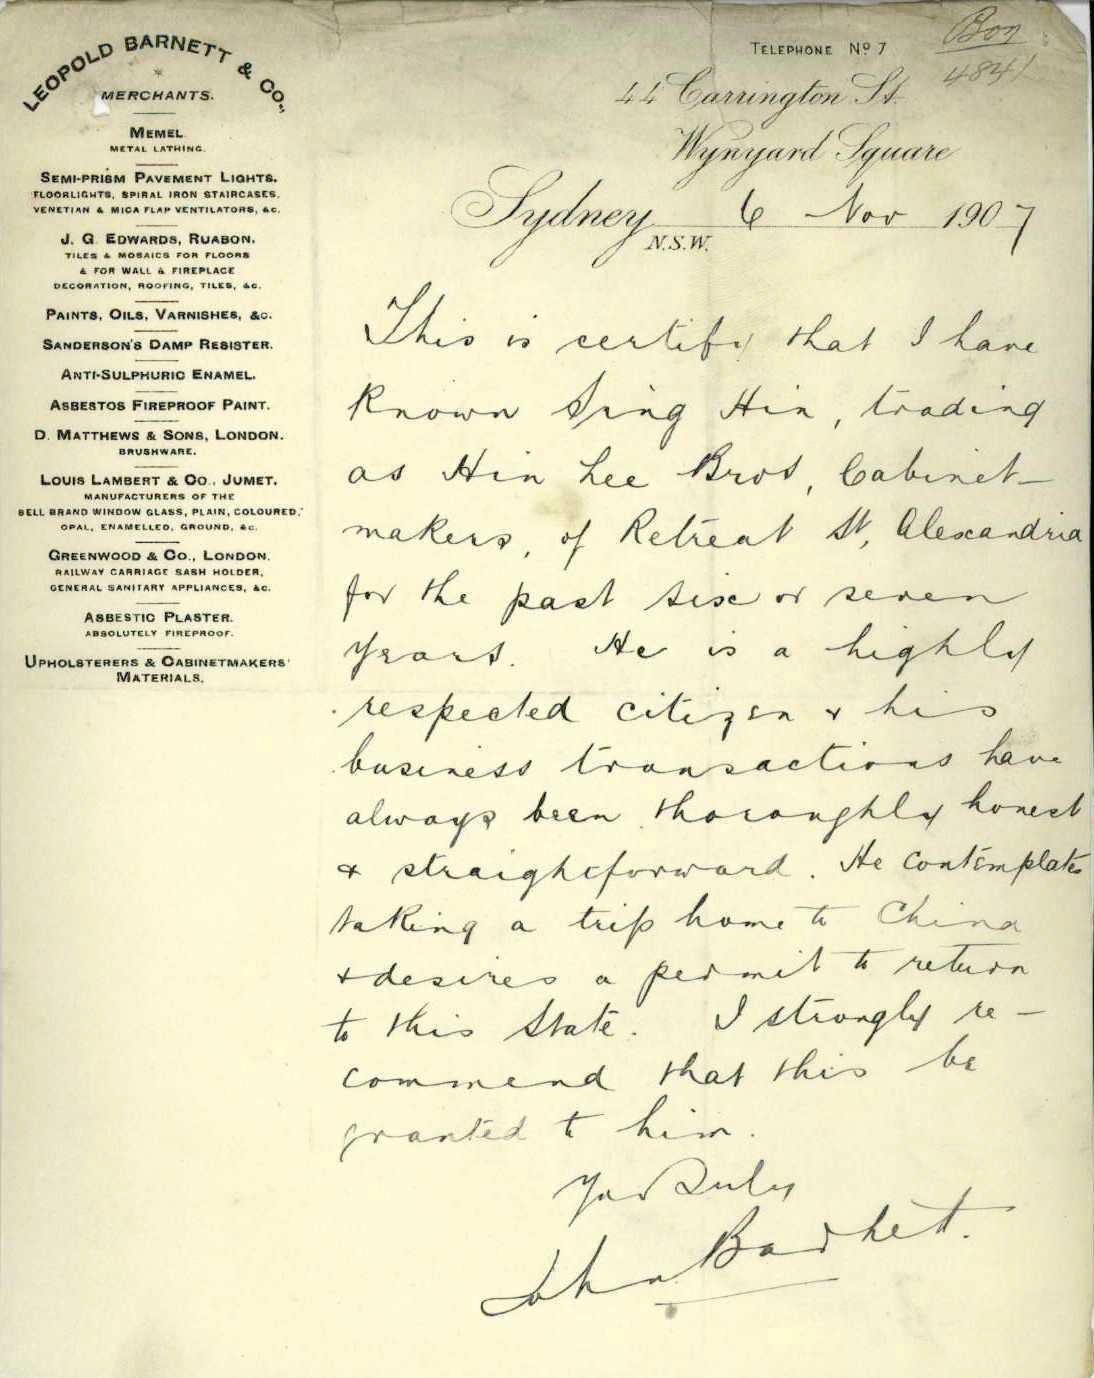 LEOPOLD BARNETT & CO.,
MERCHANTS.
MEMEL
METAL LATHING.
SEMI-PRISM PAVEMENT LIGHTS.
FLOORLIGHTS, SPIRAL IRON STAIRCASES.
VENETIAN & MICA FLAP VENTILATORS, &c.
J. G. EDWARDS, RUABON.
TILES & MOSAICS FOR FLOORS
& FOR WALL & FIREPLACE
DECORATION, ROOFING, TILES, &c.
PAINTS, OILS, VARNISHES, &c.
SANDERSON'S DAMP RESISTER.
ANTI-SULPHURIC ENAMEL.
ASBESTOS FIREPROOF PAINT.
D. MATTHEWS & SONS, LONDON.
BRUSHWARE.
LOUIS LAMBERT & CO., JUMET.
MANUFACTURERS OF THE
BELL BRAND WINDOW GLASS, PLAIN, COLOURED,
OPAL, ENAMELLED, GROUND, &c.
GREENWOOD & CO., LONDON.
RAILWAY CARRIAGE SASH HOLDER,
GENERAL SANITARY APPLIANCES, &c.
ASBESTIC PLASTER.
ABSOLUTELY FIREPROOF.
UPHOLSTERERS & CABINETMAKERS'
MATERIALS.
Box
4841
TELEPHONE No 7
44 Carrington St.
Wynyard Square
Sydney 6 Nov 1907
N.S.W.
This is certify that I have
known Sing Hin, trading
as Hin Lee Bros, Cabinet-
makers, of Retreat St, Alexandria
for the past six or seven
years. He is a highly
respected citizen & his
business transactions have
always been thoroughly honest
& straightforward. He contemplates
taking a trip home to China
& desires a permit to return
to this State. I strongly re-
commend that this be
granted to him.
Yrs Truly
John Barnett.